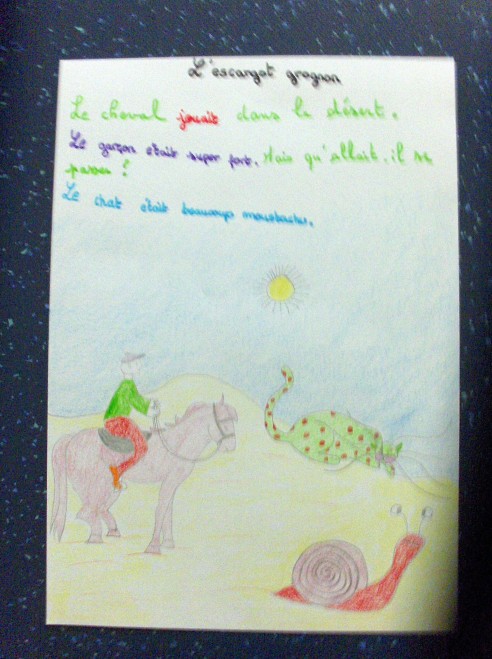 L'escargot grognon
Le cheval jouait dans le désert.
Le garçon était super fort. Mais qu'allait-il se
passer ?
Le chat était beaucoup moustachus.